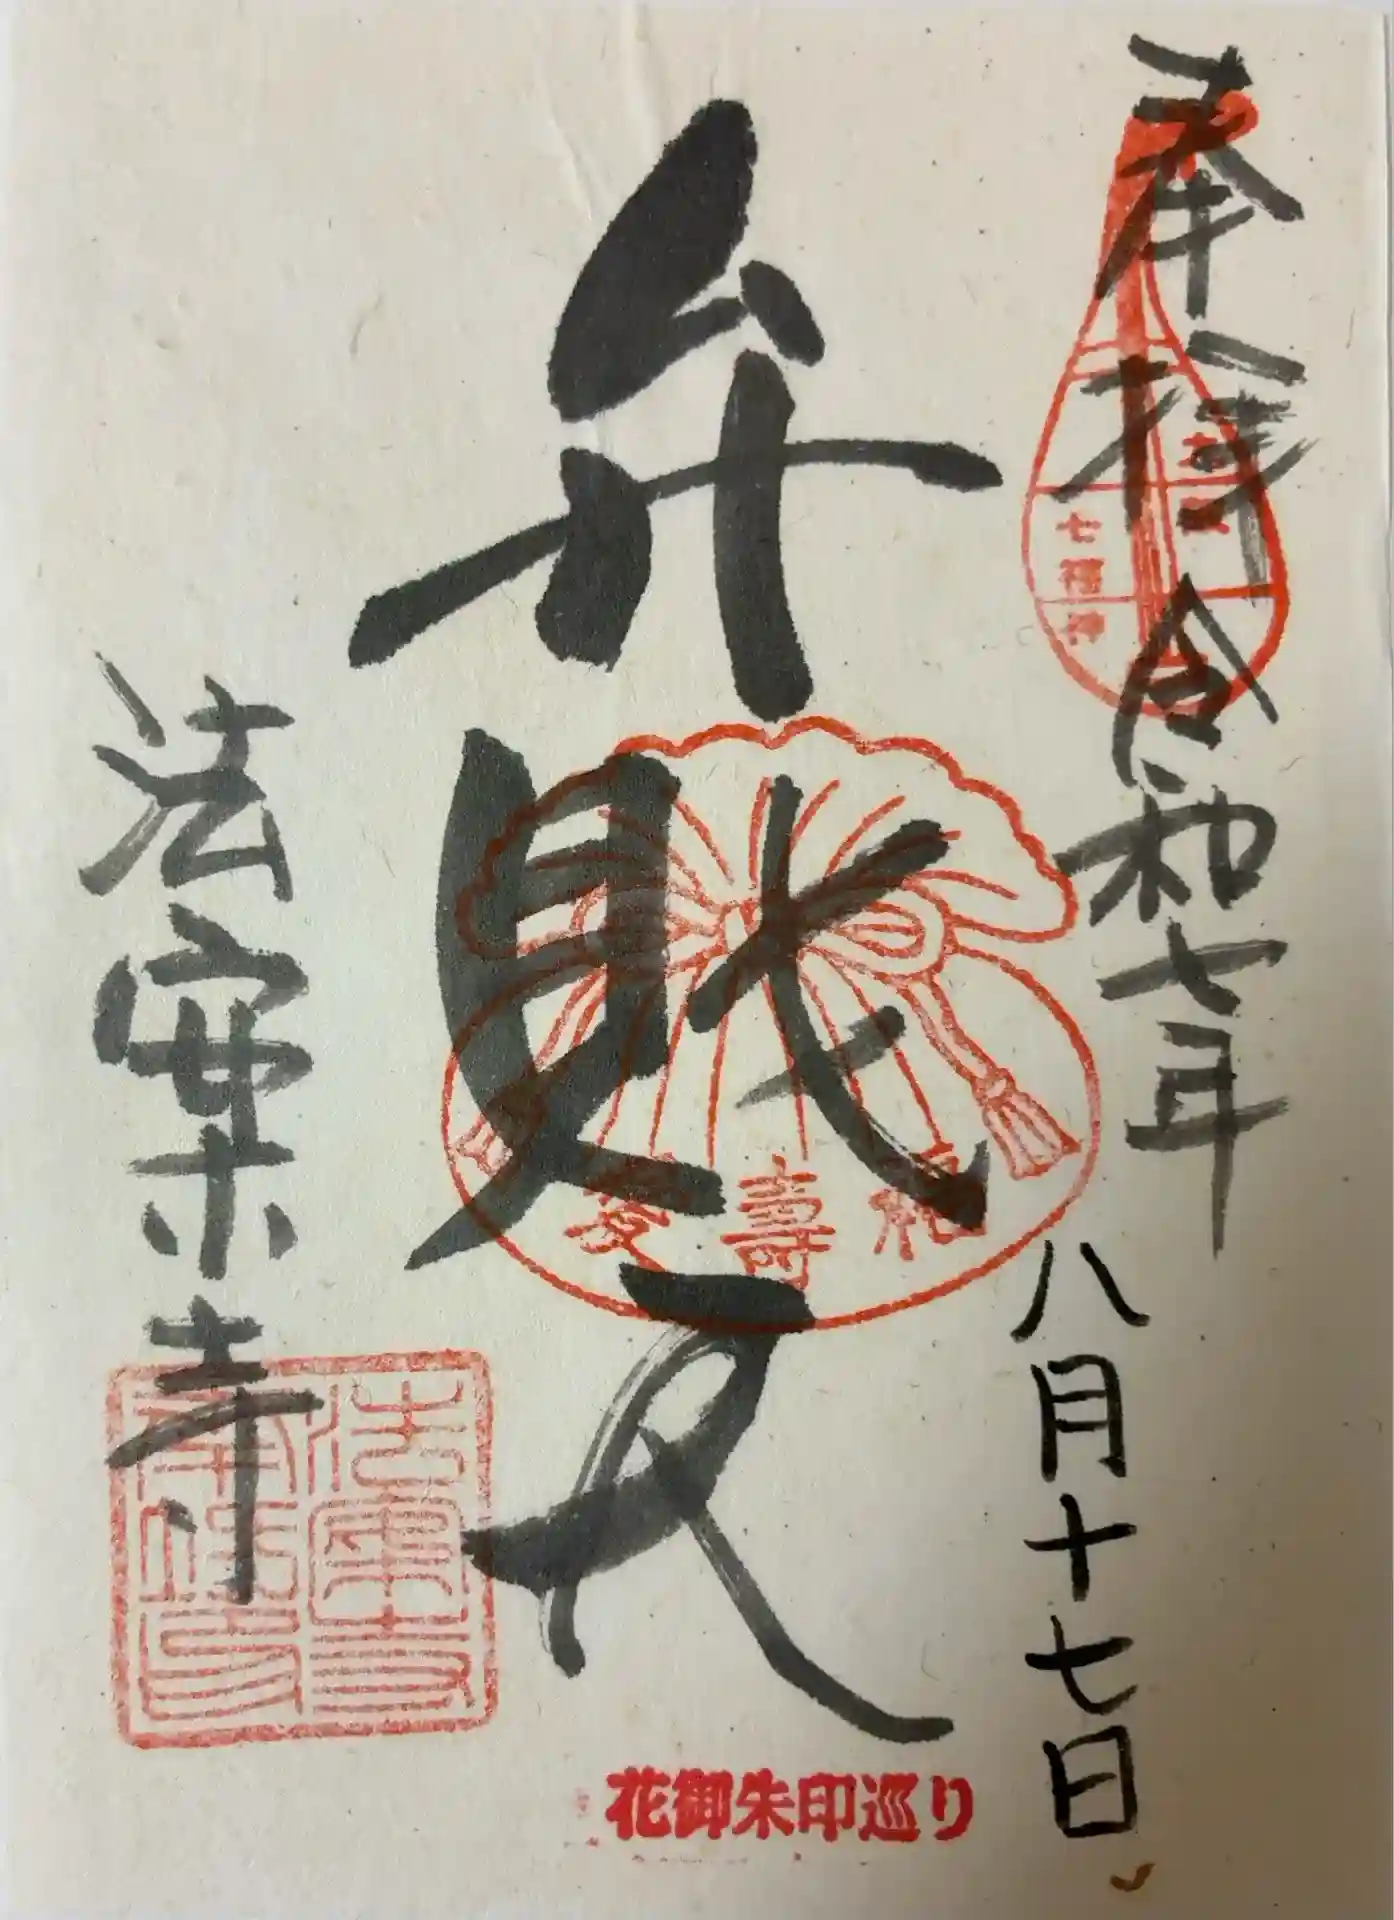 奉拝 令和七年
八月十七日
大阪
七福神
弁財天
福壽
法案寺
花御朱印巡り